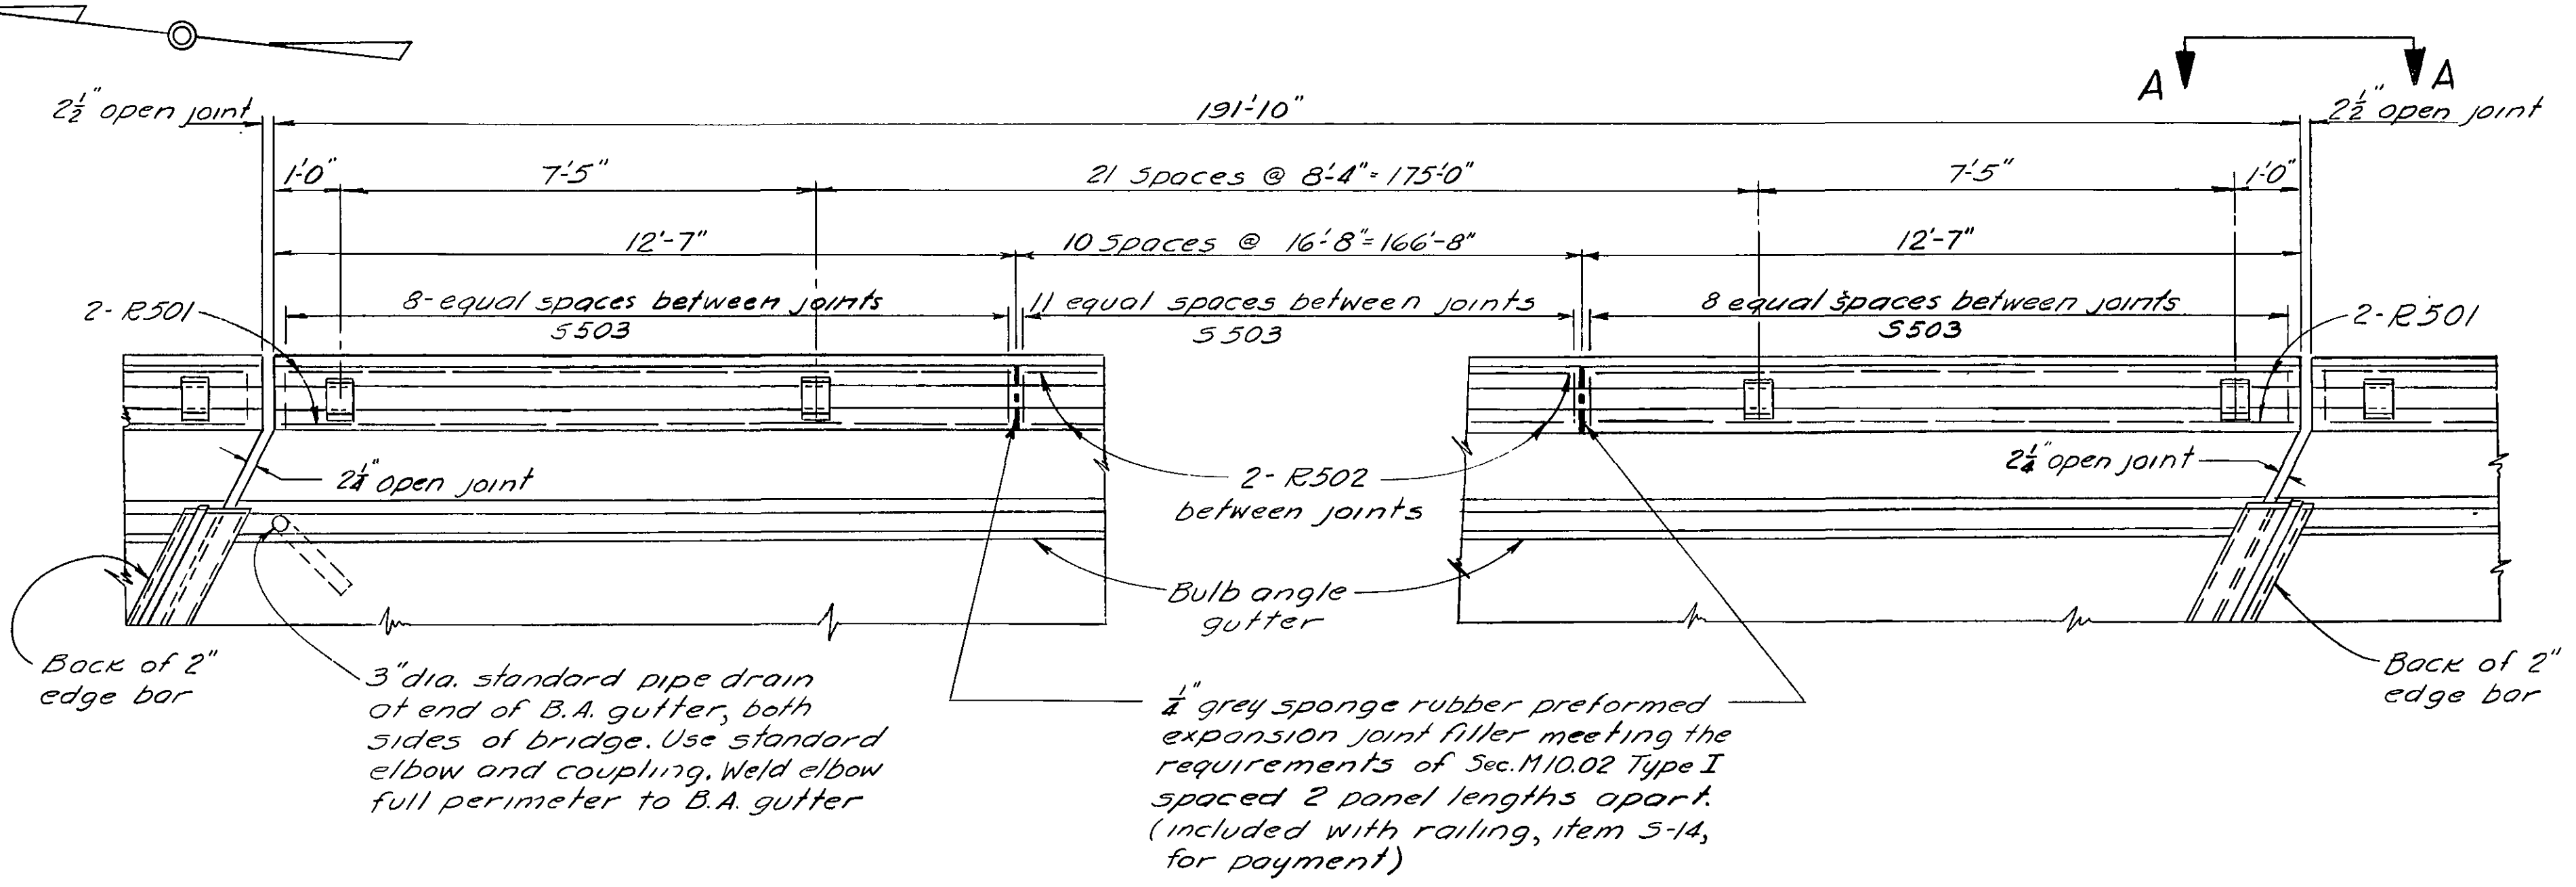 A A
2½" open joint 191'-10" 2½" open joint
1'-0" 7'-5" 21 Spaces @ 8'-4" = 175'-0" 7'-5" 1'-0"
12'-7" 10 Spaces @ 16'-8" = 166'-8" 12'-7"
2- R501 8-equal spaces between joints 11 equal spaces between joints 8 equal spaces between joints 2-R501
S503 S503 S503
2¼" open joint
2¼" open joint
2- R502
between joints
Bulb angle
gutter
Back of 2"
edge bar
3" dia. standard pipe drain
at end of B.A. gutter, both
sides of bridge. Use standard
elbow and coupling. Weld elbow
full perimeter to B.A. gutter
¼" grey sponge rubber preformed
expansion joint filler meeting the
requirements of Sec. M10.02 Type I
spaced 2 panel lengths apart.
(included with railing, item S-14,
for payment)
Back of 2"
edge bar